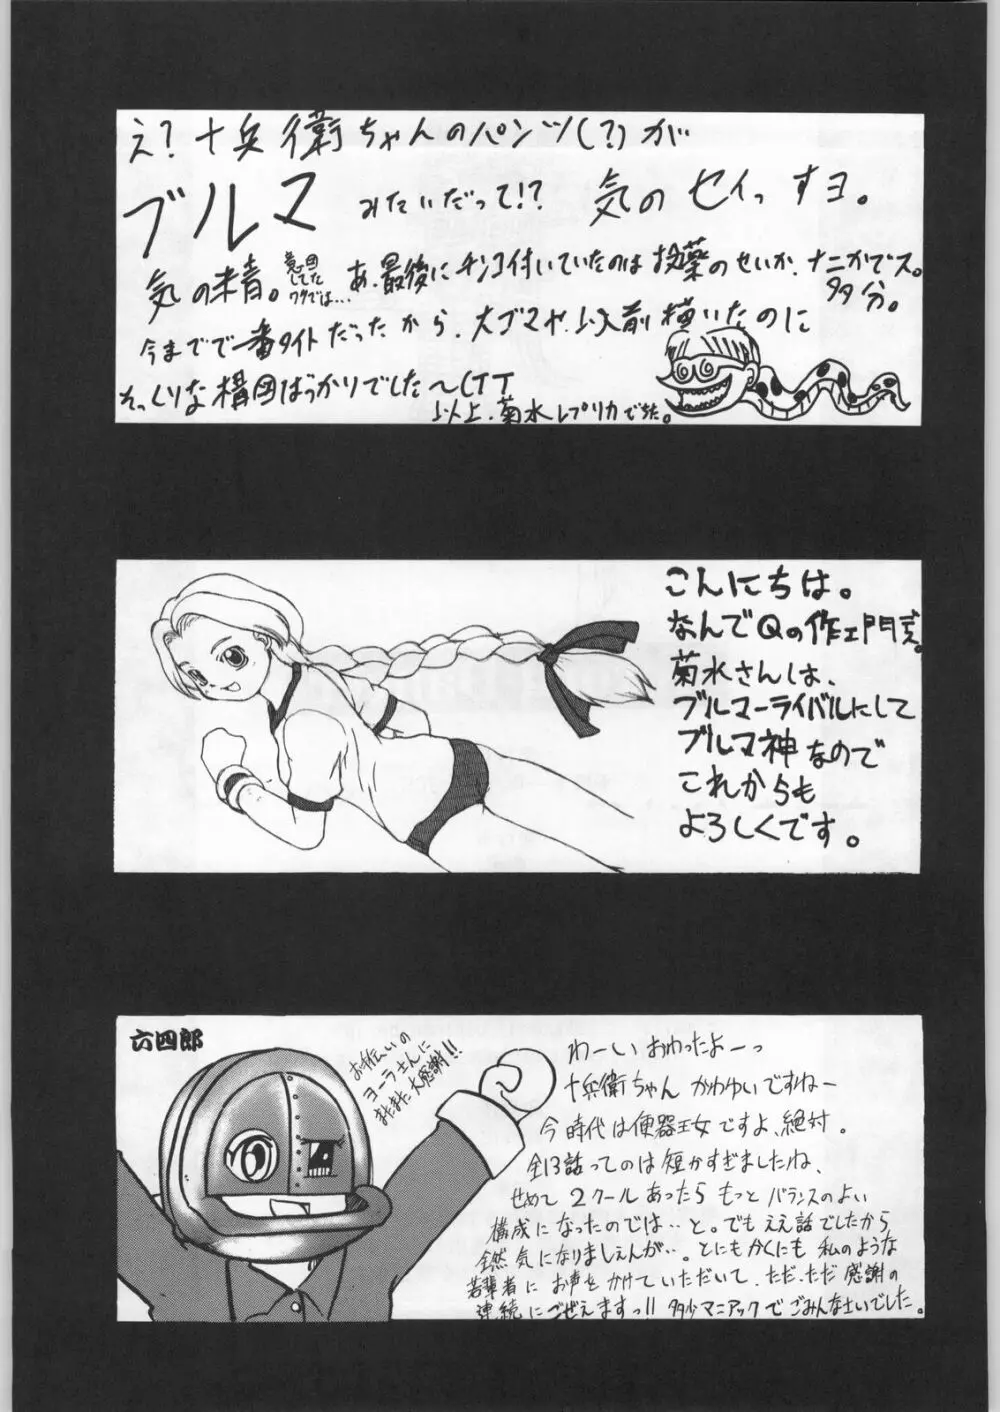 え?十兵衛ちゃんのパンツ(?)が
ブルマみたいだって!?気のセイっすヨ。
気の精。
意図してたワケでは…
あ、最後にチンコ付いていたのは投薬のせいか、ナニかでス。
多分。
今までで一番タイトだったから、大ゴマや上矢前描いたのに
そっくりな構図ばっかりでした〜(TT
以上、菊水レプリカでちた。
こんにちは。
なんでQの作エ門だ。
菊水さんは、
ブルマーライバルにして
ブルマ神なので
これからも
よろしくです。
六四郎
お手伝いの
ヨーラさんに
またまた大感謝!!
わーいおわったよーっ
十兵衛ちゃんかわゆいですねー
今時代は便器王女ですよ、絶対。
全13話ってのは短かすぎましたね、
せめて2クールあったらもっとバランスのよい
構成になったのでは‥と。でもええ話でしたから
全然気になりましぇんが‥。とにもかくにも私のような
若輩者にお声をかけていただいて、ただ、ただ感謝の
連続にごぜえますっ!!多少マニアックでごみんなせいでした。